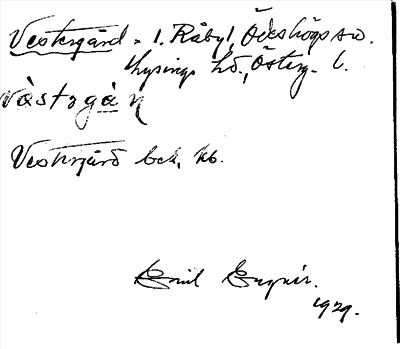 Vestergård. 1. Råby 1, Ödeshögs sn.
Lysings hd., Österg. l.
västrgå
Vestergård bek. kb.
Emil
1929.